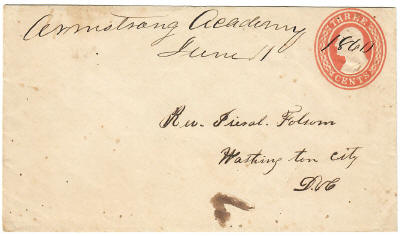 Armstrong Academy
June 11 1860
THREE
CENTS
Rev. Folsom
Washington City
D.C